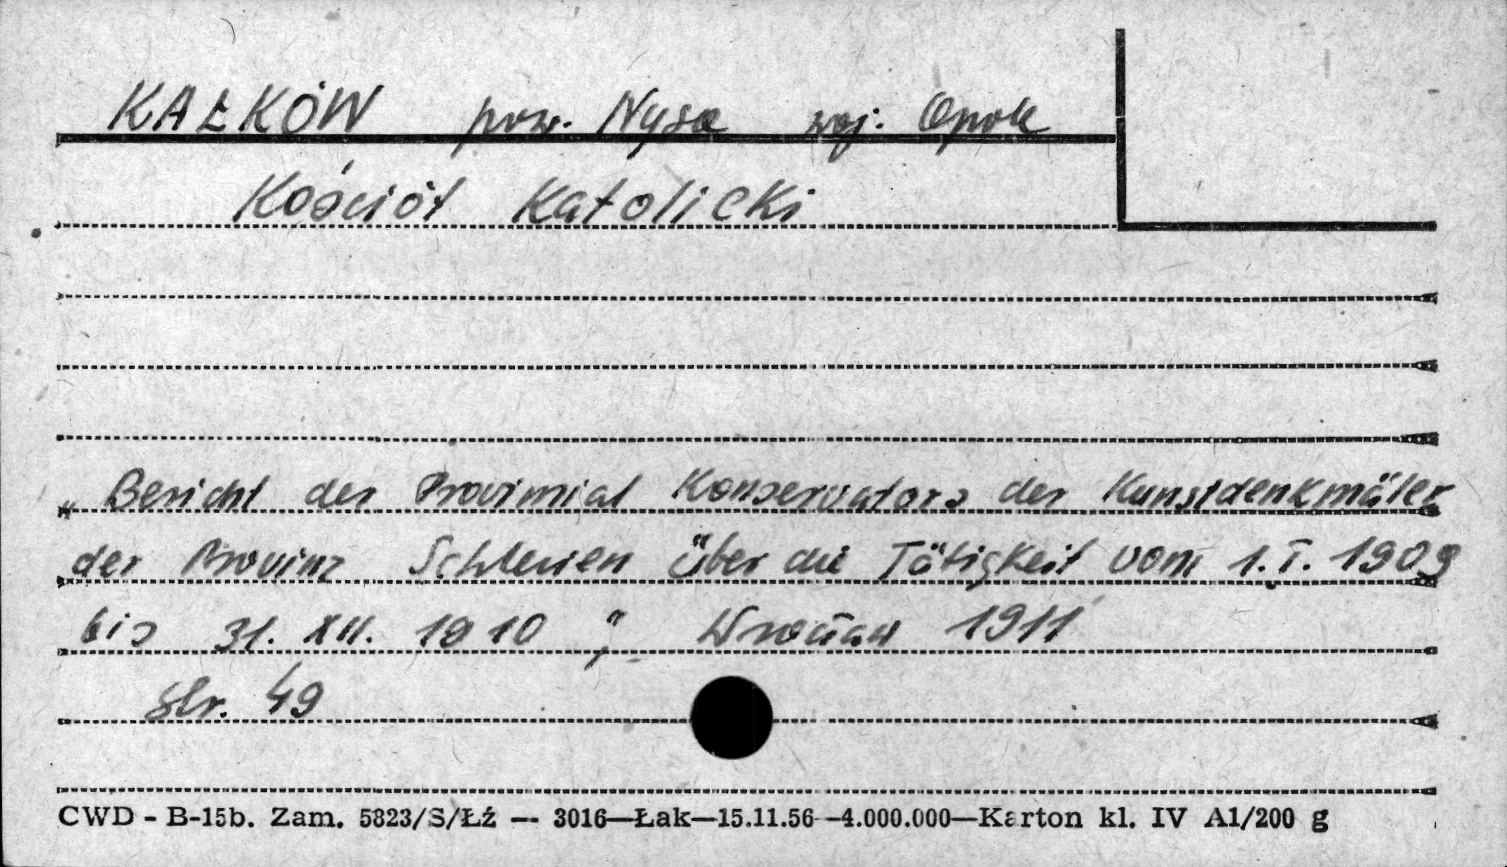 KAŁKÓW pow. Nysa woj. Opole
Kościół Katolicki
„Bericht des Provinzial Konservators der Kunstdenkmäler
der Provinz Schlesien über die Tätigkeit vom 1. I. 1909
bis 31. XII. 1910", Wrocław 1911
str. 49
CWD - B-15b. Zam. 5823/S/Łź — 3016—Łak—15.11.56—4.000.000—Karton kl. IV A1/200 g